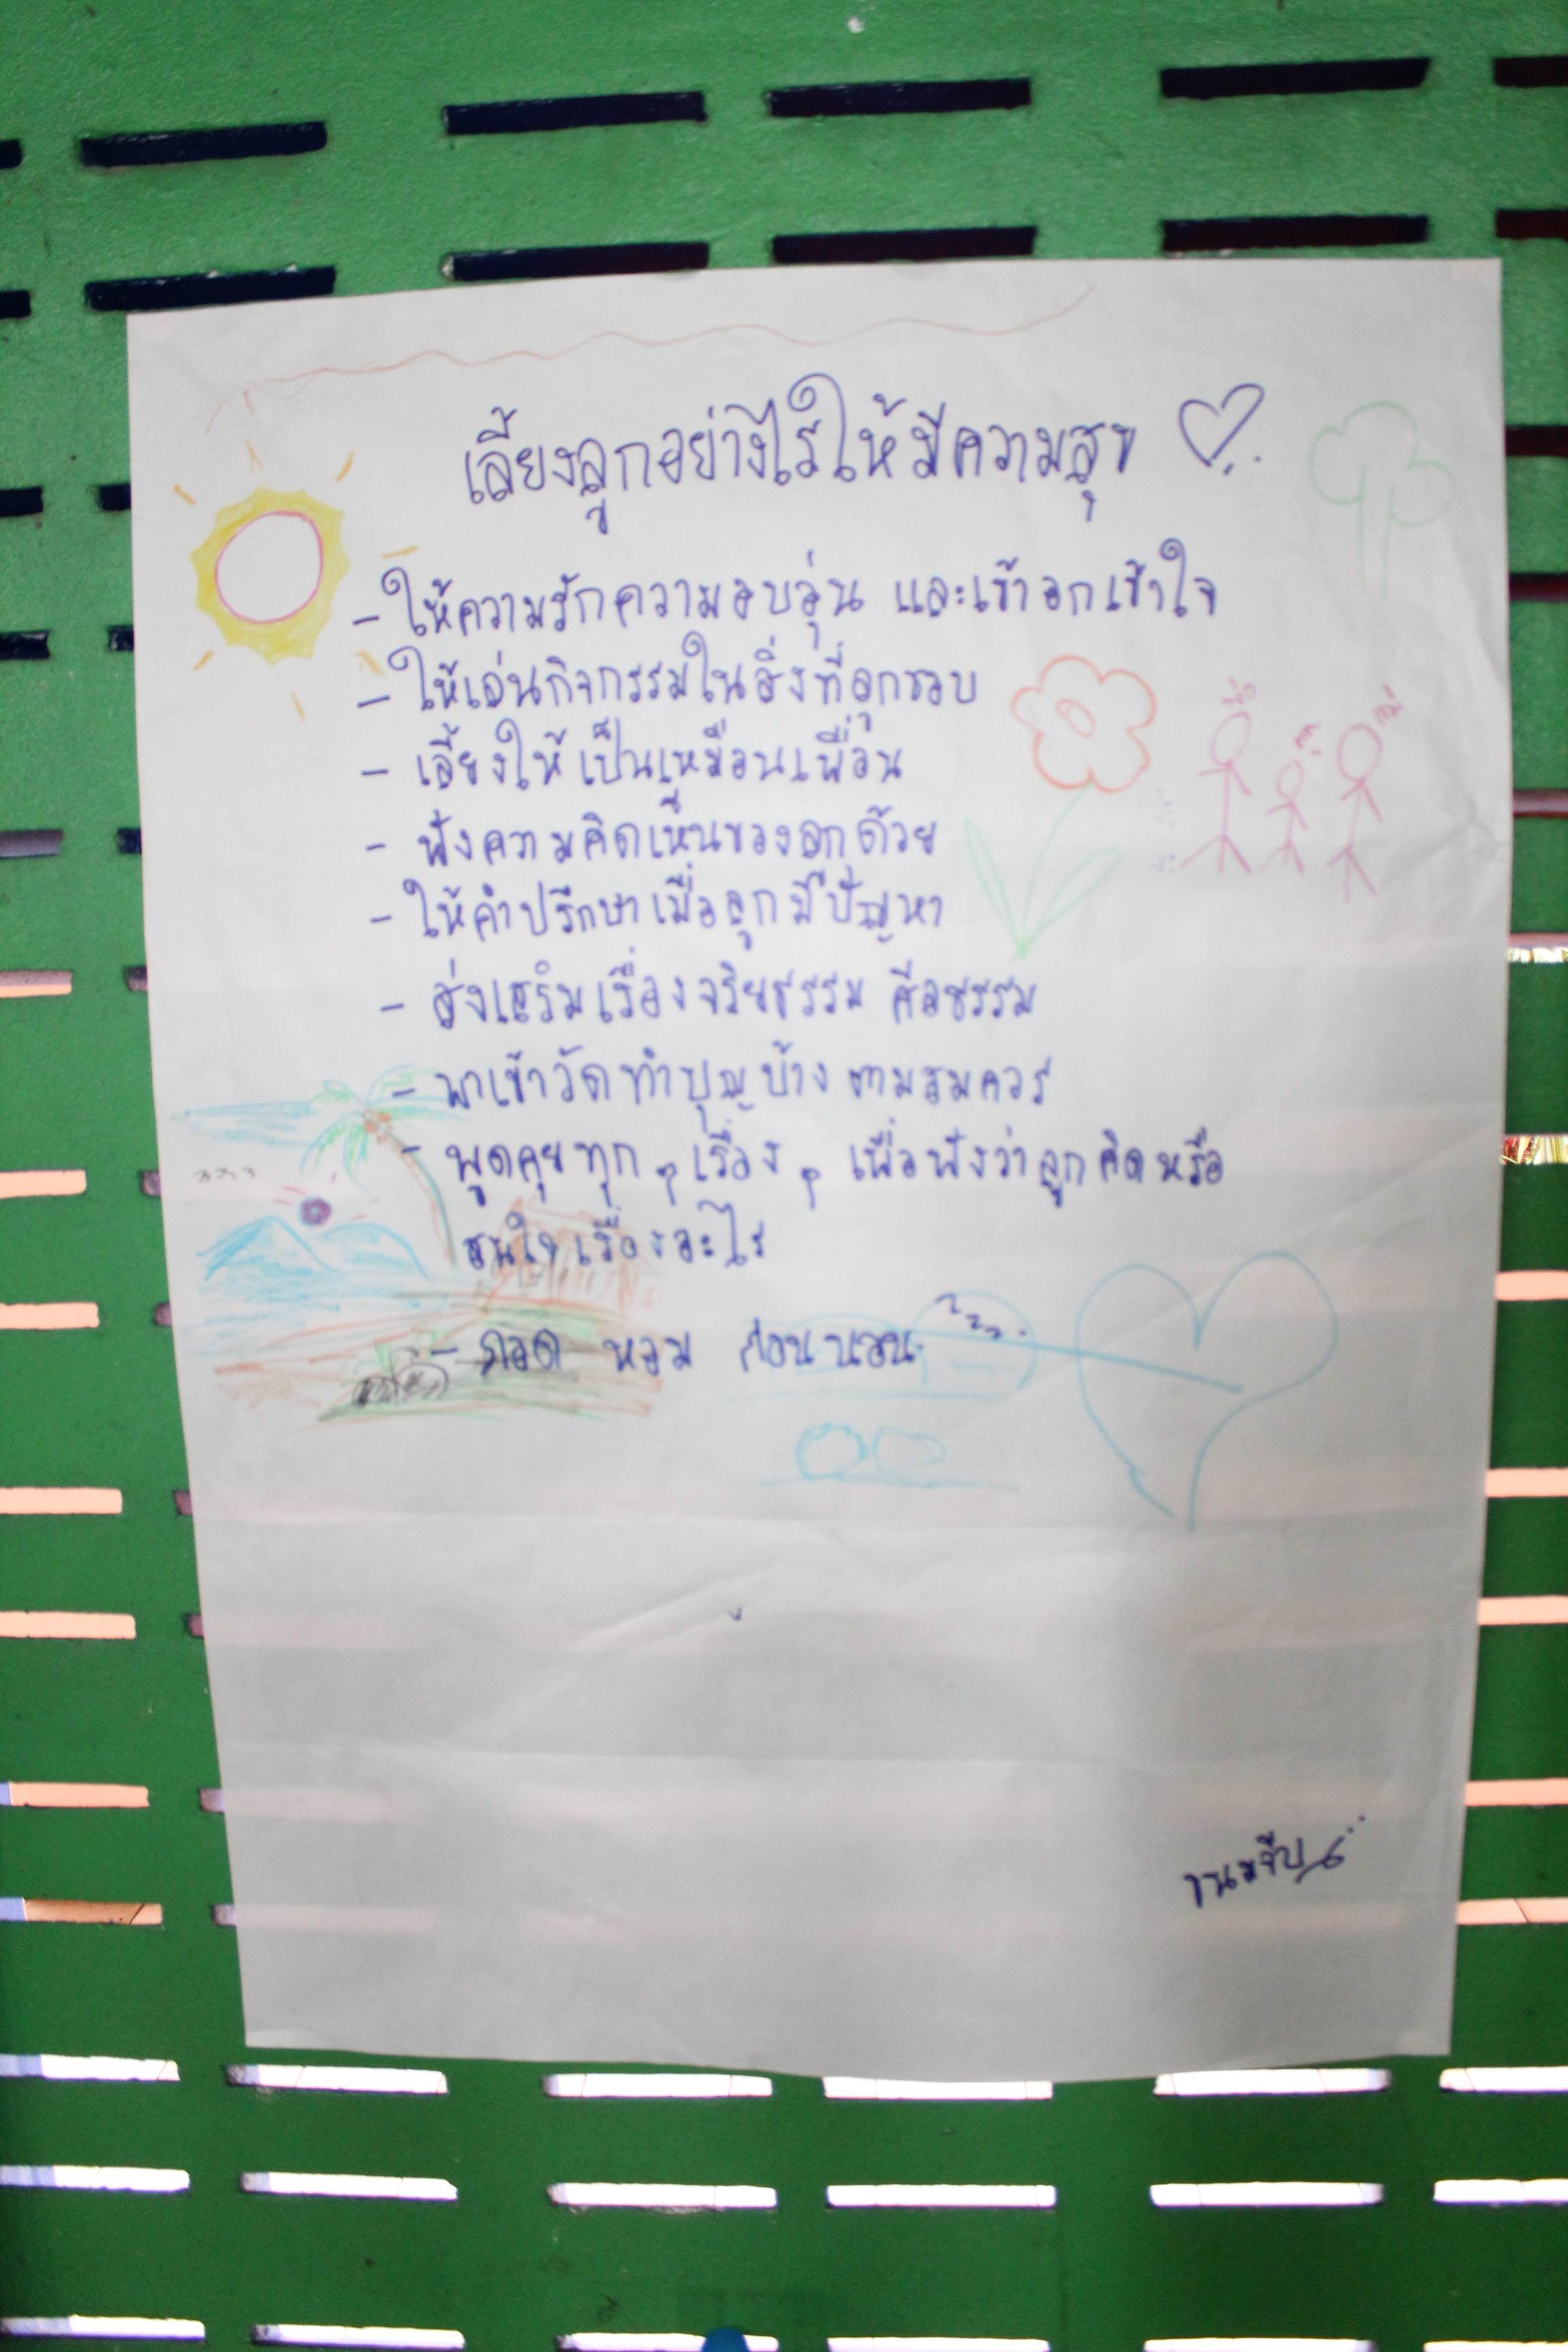 เลี้ยงลูกอย่างไรให้มีความสุข
- ให้ความรักความอบอุ่น และเข้าอกเข้าใจ
- ให้เล่นกิจกรรมในสิ่งที่ลูกชอบ
- เลี้ยงให้เป็นเหมือนเพื่อน
- ฟังความคิดเห็นของลูกด้วย
- ให้คำปรึกษาเมื่อลูกมีปัญหา
- ส่งเสริมเรื่องจริยธรรม ศีลธรรม
- พาเข้าวัดทำบุญบ้าง ตามสมควร
- พูดคุยทุก ๆ เรื่อง ๆ เพื่อฟังว่าลูกคิดหรือ
สนใจเรื่องอะไร
- กอด หอม ก่อนนอน
ขนมจีบ